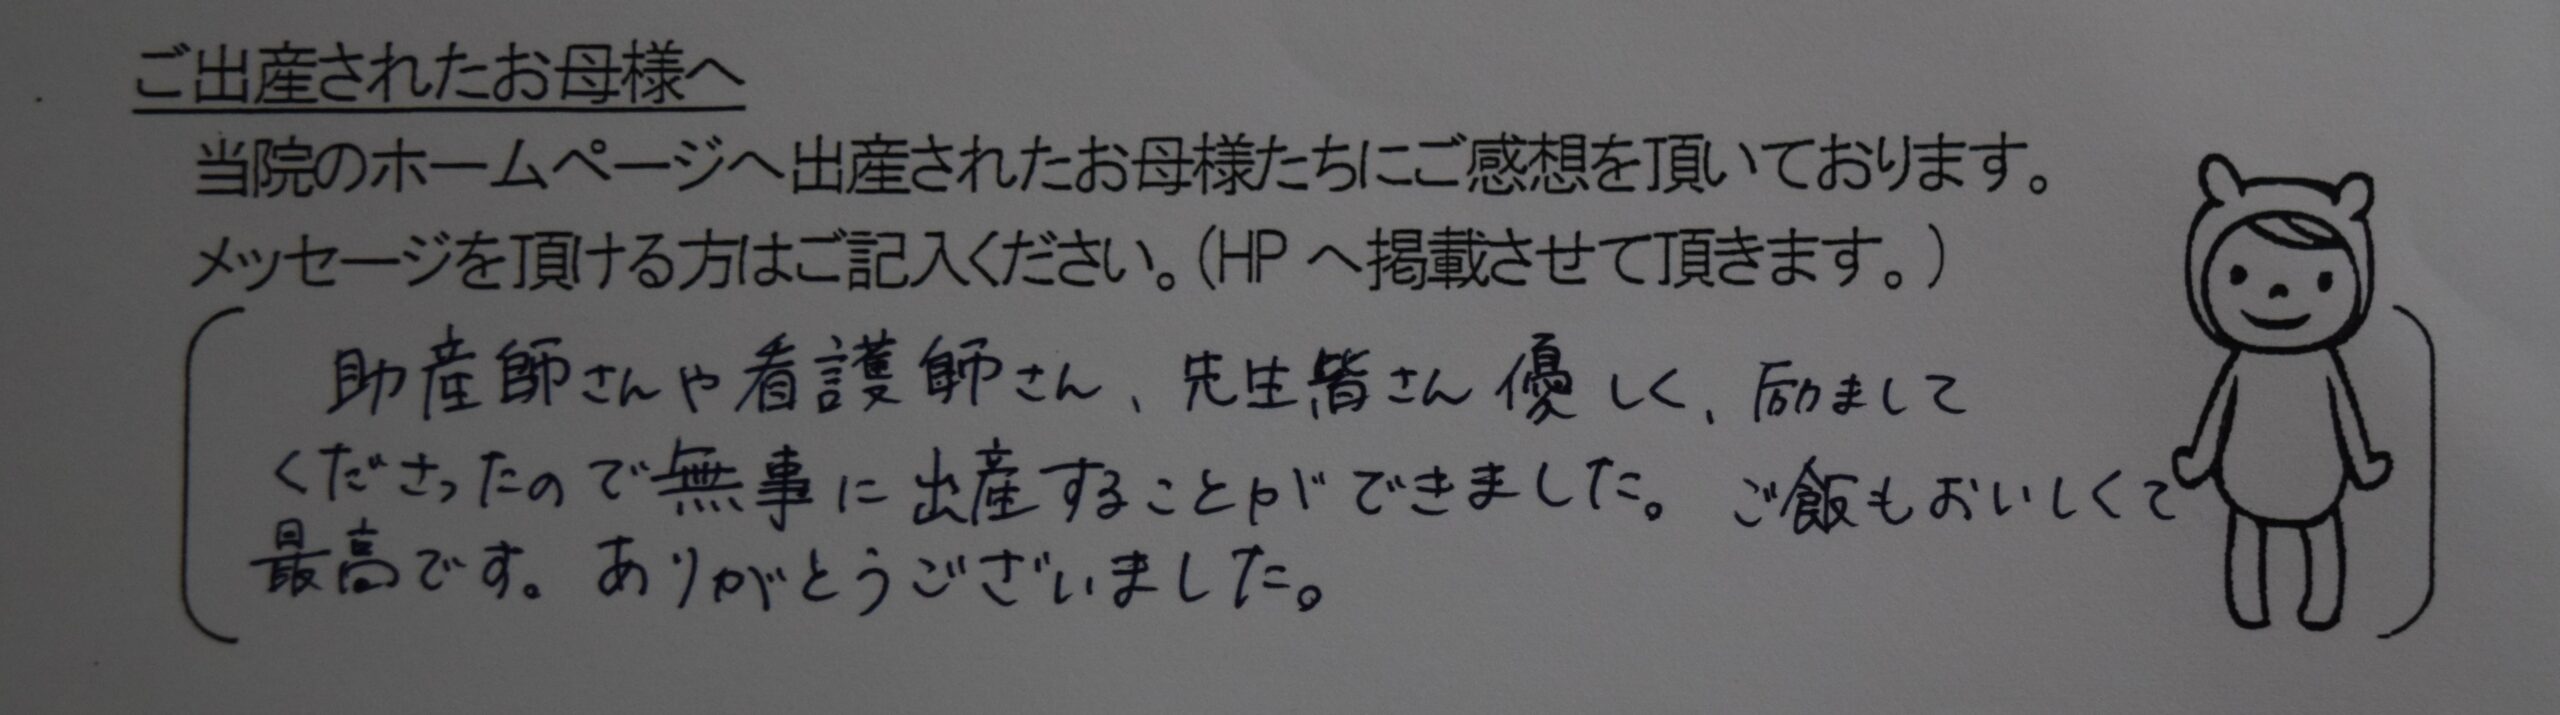 ご出産されたお母様へ
当院のホームページへ出産されたお母様たちにご感想を頂いております。
メッセージを頂ける方はご記入ください。（HP へ掲載させて頂きます。）
助産師さんや看護師さん、先生皆さん優しく、励まして
くださったので無事に出産することができました。ご飯もおいしくて
最高です。ありがとうございました。